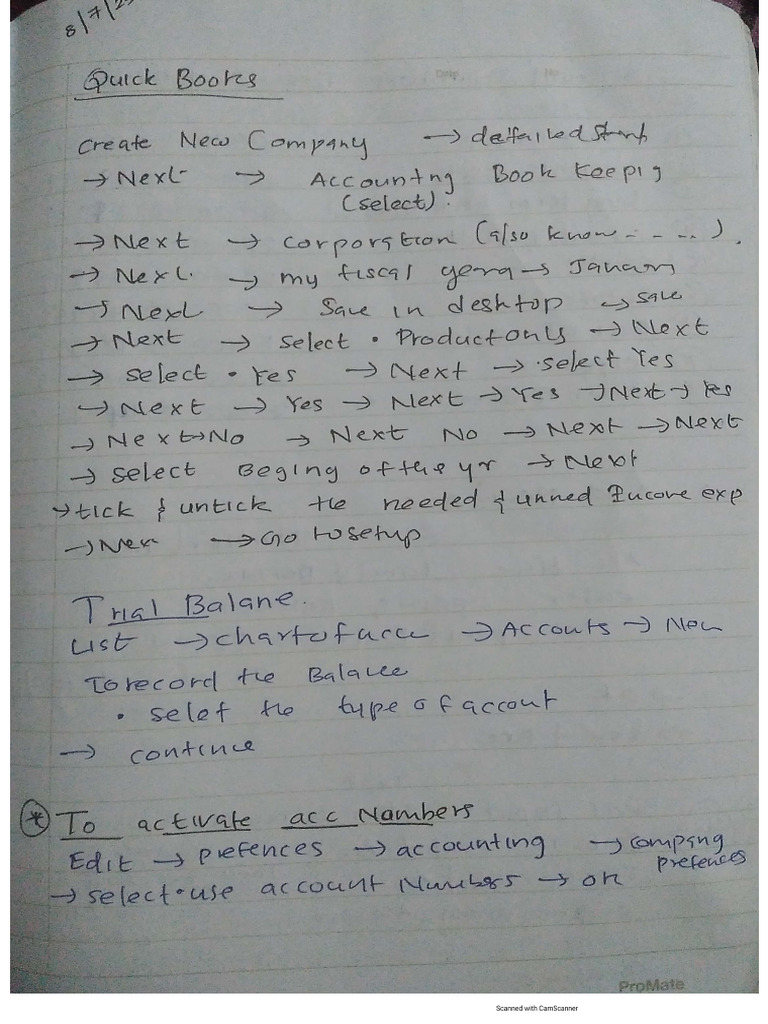 8/7/2
Quick Books
Create New Company → detailed start
→ Next → Accountng Book Keepig
(select).
→ Next → corporation (also know - - - -).
→ Next. → my fiscal → January
→ Next → Save in desktop → save
→ Next → select • Product only → Next
→ select • Yes → Next → •select Yes
→ Next → Yes → Next → Yes → Next → Yes
→ Next → No → Next No → Next → Next
→ select Beging of the yr → Next
→ tick & untick the needed & unned Income exp
→ Nex → Go to setup
Trial Balane.
List → chart of acc → Accouts → New
To record the Balance
• selet the type of accout
→ continue
* To activate acc Numbers
Edit → prefences → accounting → company
prefences
→ select • use account Numbers → ok
ProMate
Scanned with CamScanner